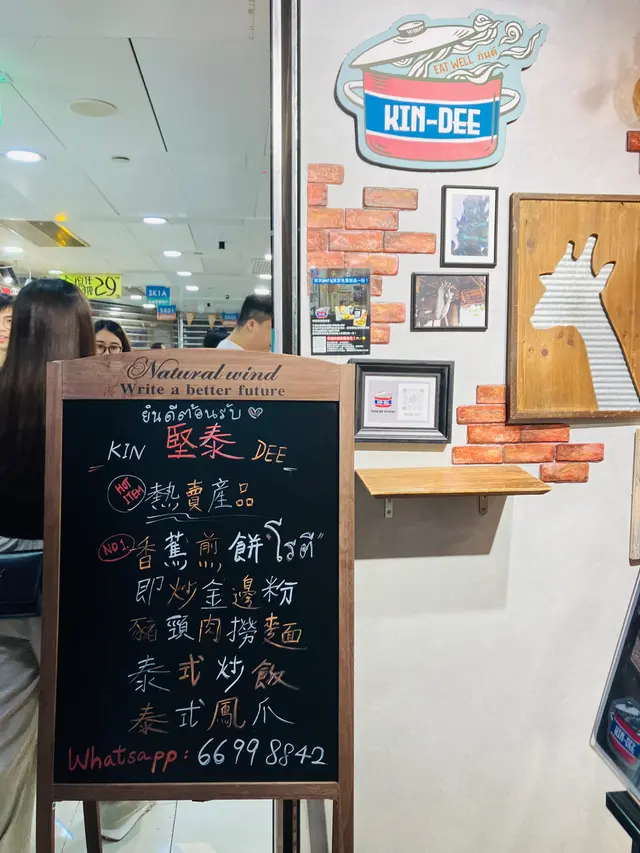 EAT WELL กินดี
KIN-DEE
SK1A
Natural wind
Write a better future
ยินดีต้อนรับ
KIN 堅泰 DEE
HOT ITEM 熱賣產品
NO1. 香蕉煎餅 "โรตี"
即炒金邊粉
豬頸肉撈麵
泰式炒飯
泰式鳳爪
Whatsapp: 66998842
KIN-DEE